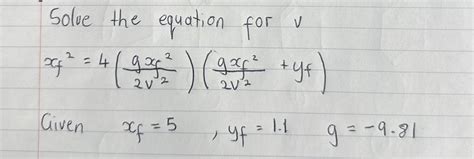 Solve the equation for v
xf² = 4 (gxf²/2v²) (gxf²/2v² + yf)
Given xf = 5 , yf = 1.1 g = -9.81